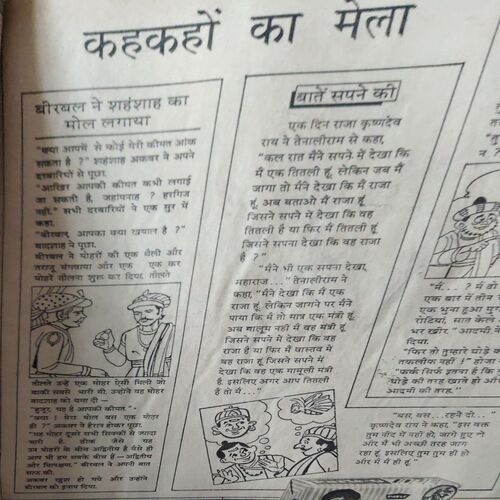 कहकहों का मेला
बीरबल ने शहंशाह का
मोल लगाया
"क्या आपमें से कोई मेरी कीमत आंक
सकता है ?" शहंशाह अकबर ने अपने
दरबारियों से पूछा.
"आखिर आपकी कीमत कभी लगाई
जा सकती है, जहांपनाह ? हरगिज
नहीं," सभी दरबारियों ने एक सुर में
कहा.
"बीरबल, आपका क्या खयाल है ?"
बादशाह ने पूछा.
बीरबल ने मोहरों की एक थैली और
तराजू मंगवाया और एक एक कर
मोहरें तौलना शुरू कर दिया. तौलते
तौलते उन्हें एक मोहर ऐसी मिली जो
बाकी सबसे भारी थी. उन्होंने वह मोहर
बादशाह को थमा दी —
"हुजूर, यह है आपकी कीमत."
"क्या ! मेरा मोल बस एक मोहर
ही ?" अकबर ने हैरान होकर पूछा.
"यह मोहर दूसरे सभी सिक्कों से ज्यादा
भारी है. ठीक जैसे यह
उन मोहरों के बीच अद्वितीय है वैसे ही
आप भी हम सबके बीच हैं — अद्वितीय
और विलक्षण." बीरबल ने अपनी बात
साफ की.
अकबर खुश हो गये और उन्होंने
बीरबल को इनाम दिया.
बातें सपने की
एक दिन राजा कृष्णदेव
राय ने तेनालीराम से कहा,
"कल रात मैंने सपने में देखा कि
मैं एक तितली हूं, लेकिन जब मैं
जागा तो मैंने देखा कि मैं राजा
हूं, अब बताओ मैं राजा हूं
जिसने सपने में देखा कि वह
तितली है या फिर मैं तितली हूं
जिसने सपना देखा कि वह राजा
है ?"
"मैंने भी एक सपना देखा,
महाराज..." तेनालीराम ने
कहा, "मैंने देखा कि मैं एक
राजा हूं, लेकिन जागने पर मैंने
पाया कि मैं तो मात्र एक मंत्री हूं.
अब मालूम नहीं मैं वह मंत्री हूं
जिसने सपने में देखा कि वह
राजा है या फिर मैं वास्तव में
वह राजा हूं, जिसने सपने में
देखा कि वह एक मामूली मंत्री
है. इसलिए अगर आप तितली
हैं तो मैं..."
"बस, बस...रहने दी..."
कृष्णदेव राय ने कहा, "इस वक्त
तुम नींद में नहीं हो, जागे हुए हो
और मैं भी अच्छी तरह जाग
रहा हूं इसलिए तुम तुम ही हो
और मैं मैं ही हूं."
"मैं... ? मैं
एक बार में तीन
एक भुना हुआ मुर्ग
रोटियां, सात केले
भर खीर," आदमी
दिया.
"फिर तो तुम्हारे घोड़े को
तकलीफ नहीं !"
"फर्क सिर्फ इतना है कि
घोड़े की तरह खाते हो और
आदमी की तरह."